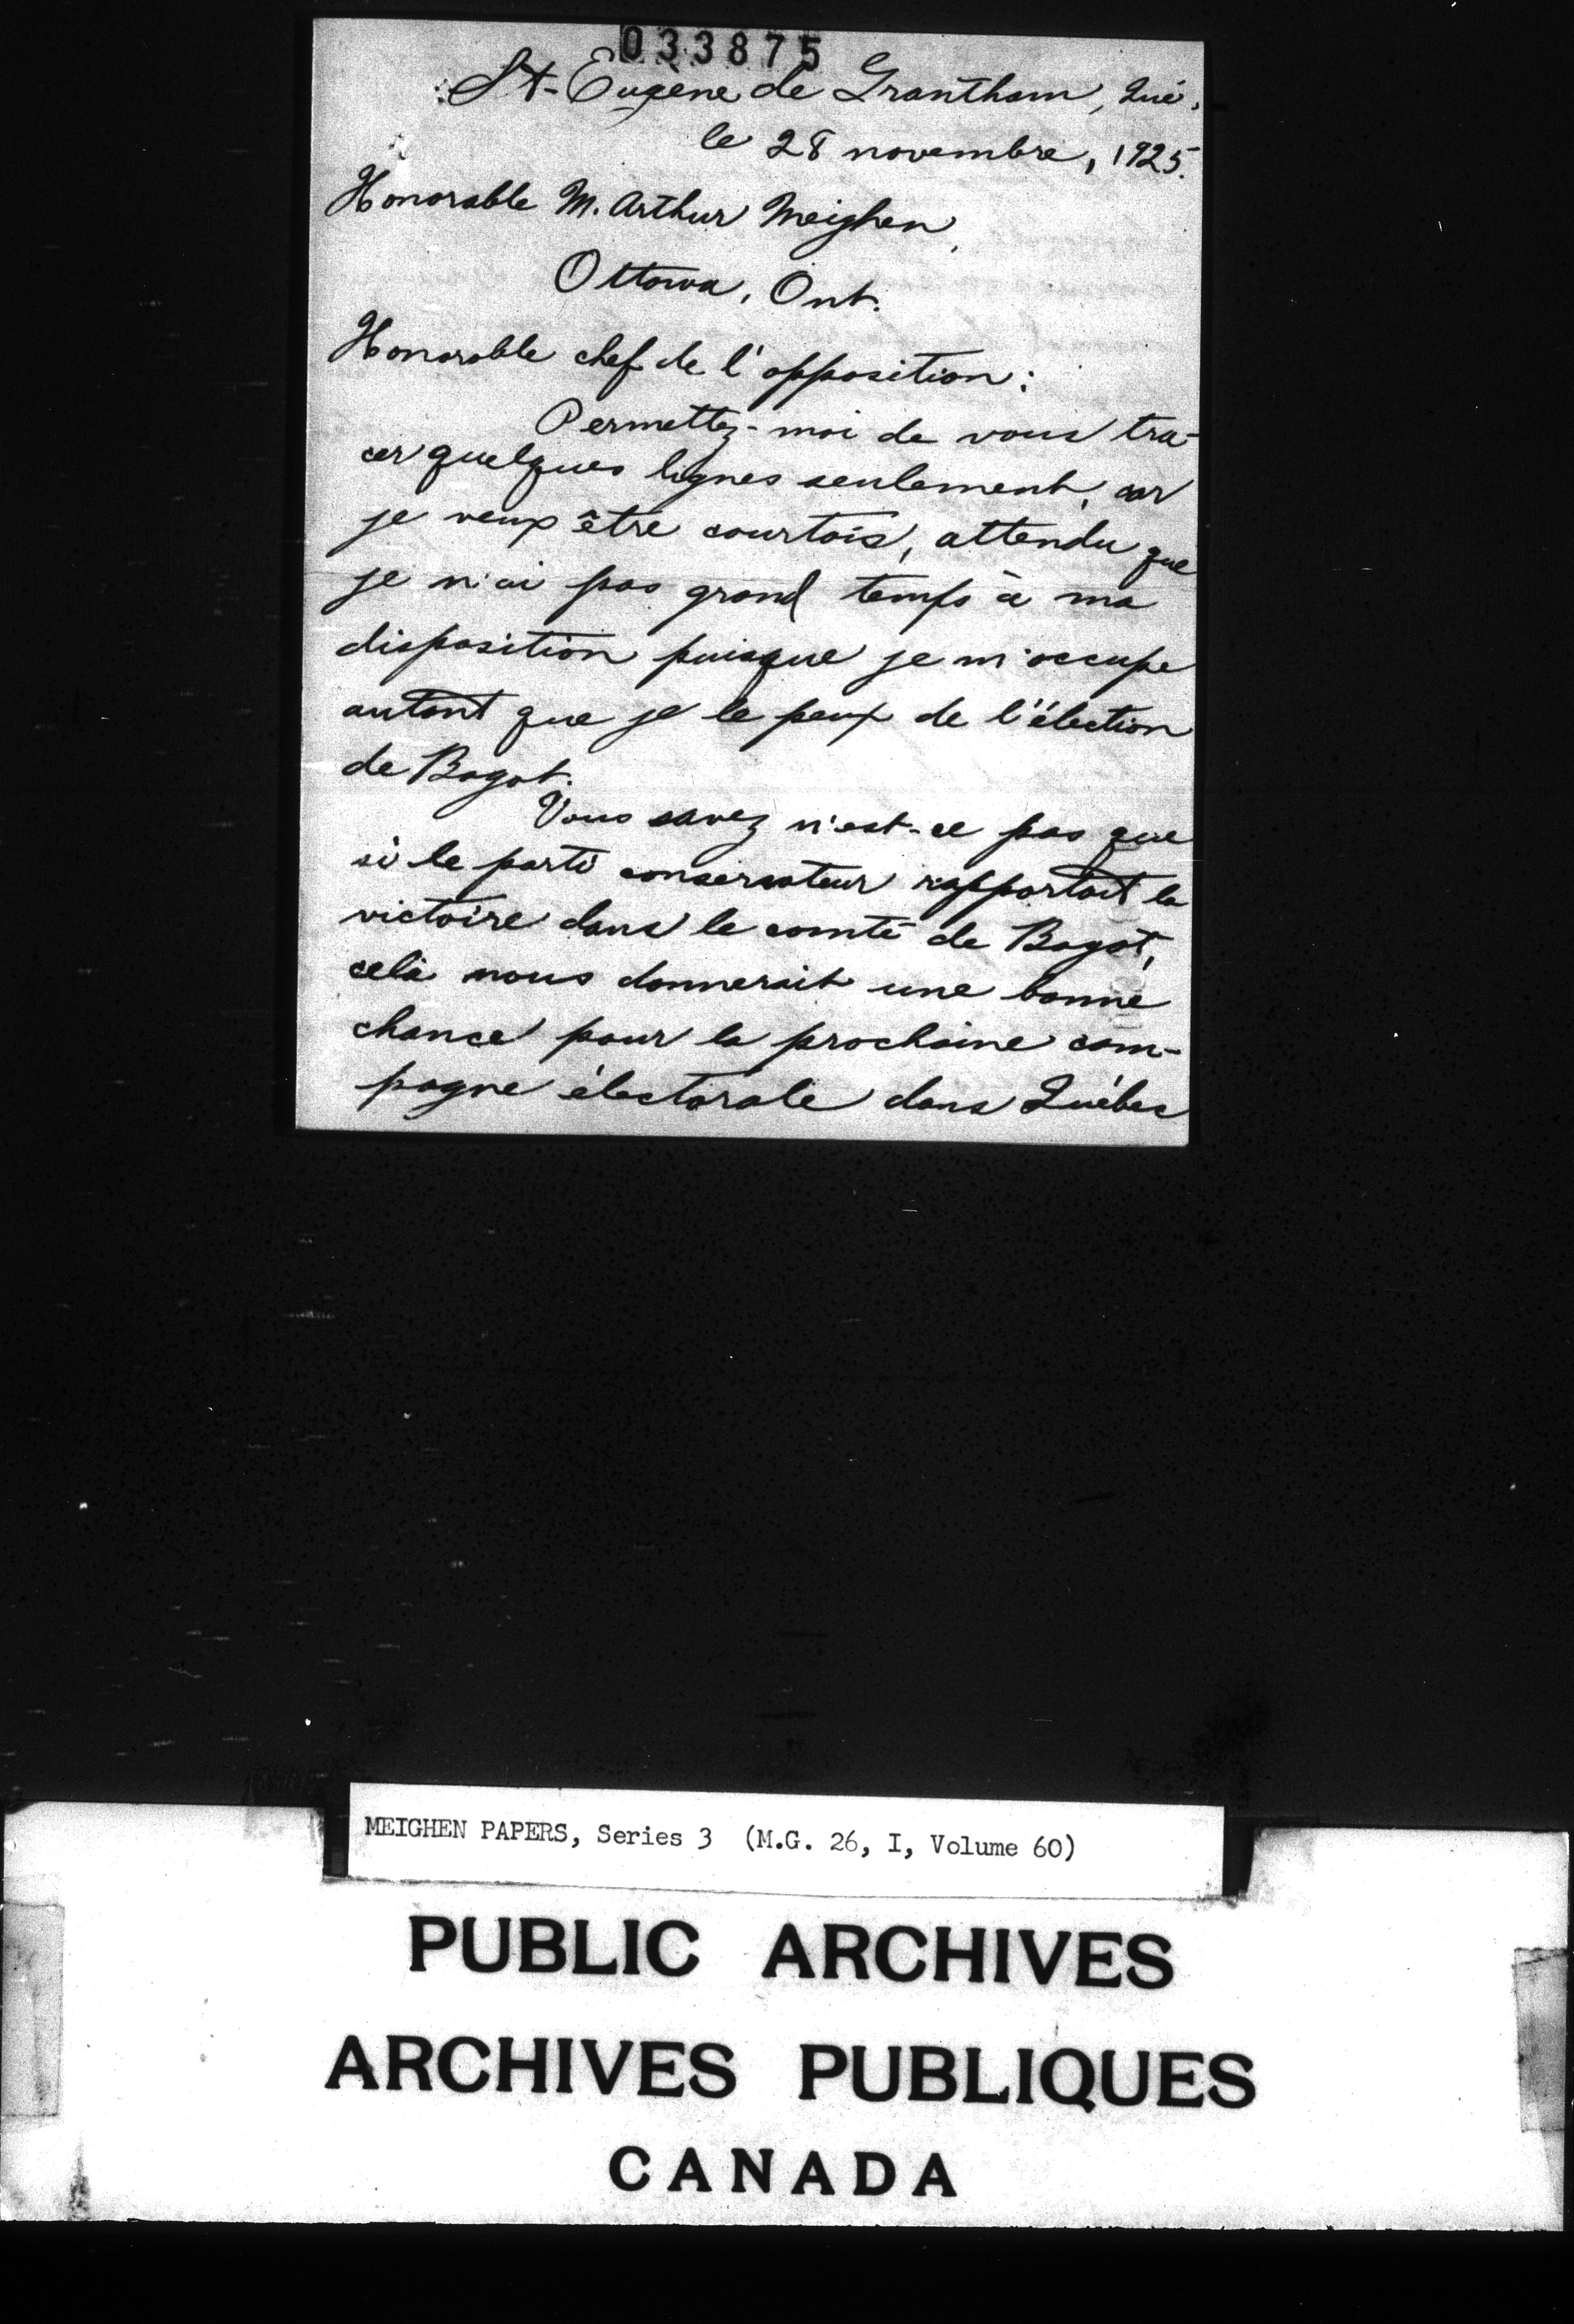 033875
St-Eugène de Grantham, Qué.
le 28 novembre, 1925.
Honorable M. Arthur Meighen,
Ottawa, Ont.
Honorable chef de l'opposition:
Permettez-moi de vous tra-
cer quelques lignes seulement, car
je veux être courtois, attendu que
je n'ai pas grand temps à ma
disposition puisque je m'occupe
autant que je le peux de l'élection
de Bagot.
Vous savez n'est-ce pas que
si le parti conservateur rapportait la
victoire dans le comté de Bagot,
celà nous donnerait une bonne
chance pour la prochaine cam-
pagne électorale dans Québec
MEIGHEN PAPERS, Series 3 (M.G. 26, I, Volume 60)
PUBLIC ARCHIVES
ARCHIVES PUBLIQUES
CANADA